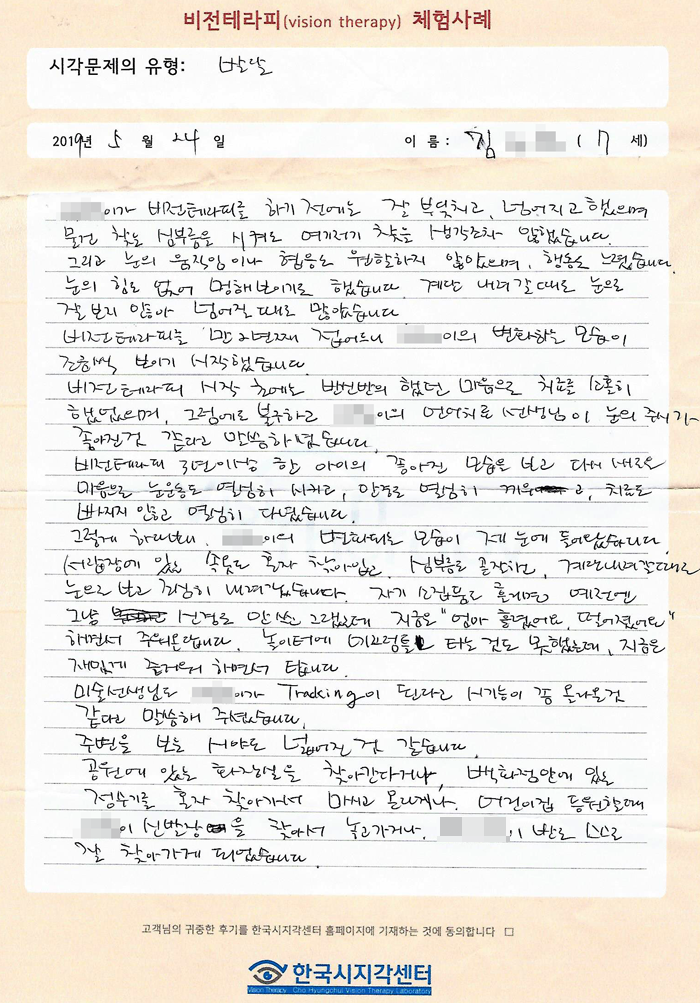 비전테라피(vision therapy) 체험사례
시각문제의 유형: 발달
2019년 5 월 24 일 이 름 : 김 ( 7 세)
이가 비전테라피를 하기 전에는 잘 부딪치고, 넘어지고 했으며
물건 찾는 심부름을 시켜도 여기저기 찾을 생각조차 않했습니다.
그리고 눈의 움직임이나 협응도 원활하지 않았으며, 행동도 느렸습니다.
눈의 힘도 없어 멍해보이기도 했습니다. 계단 내려갈때도 눈으로
잘 보지 않아 넘어질때도 많았습니다
비전테라피를 만 2년째 접어드니 이의 변화하는 모습이
조금씩 보이기 시작했습니다.
비전테라피 시작 초에는 반신반의 했던 마음으로 치료를 소홀히
했었으며, 그럼에도 불구하고 이의 언어치료 선생님이 눈의 주시가
좋아진것 같다고 말씀하셨습니다.
비전테라피 2년이상 한 아이의 좋아진 모습을 보고 다시 새로운
마음으로 눈운동도 열심히 시키고, 안경도 열심히 끼우고, 치료도
빠지지 않고 열심히 다녔습니다.
그렇게 하다보니, 이의 변화되는 모습이 제 눈에 들어왔습니다.
서랍장에 있는 속옷도 혼자 찾아입고, 심부름도 곧잘하고, 계단내려갈때도
눈으로 보고 조심히 내려갔습니다. 자기 소지품을 흘리면 예전엔
그냥 신경도 안쓰고 그랬는데 지금은 "엄마 흘렸어요, 떨어졌어요"
하면서 주워온답니다. 놀이터에 미끄럼틀 타는 것도 못했는데, 지금은
재밌게 즐거워 하면서 탑니다.
미술선생님도 이가 Tracking이 된다고 시기능이 좀 올라온것
같다고 말씀해 주셨습니다.
주변을 보는 시야도 넓어진 것 같습니다.
공원에 있는 화장실을 찾아간다거나, 백화점안에 있는
정수기를 혼자 찾아가서 마시고 온다거나, 어린이집 등원할때
이 신발장을 찾아서 놓고가거나, 이 반도 스스로
잘 찾아가게 되었습니다.
고객님의 귀중한 후기를 한국시지각센터 홈페이지에 기재하는 것에 동의합니다 □
한국시지각센터
Vision Therapy Cho Hyungchul Vision Therapy Laboratory